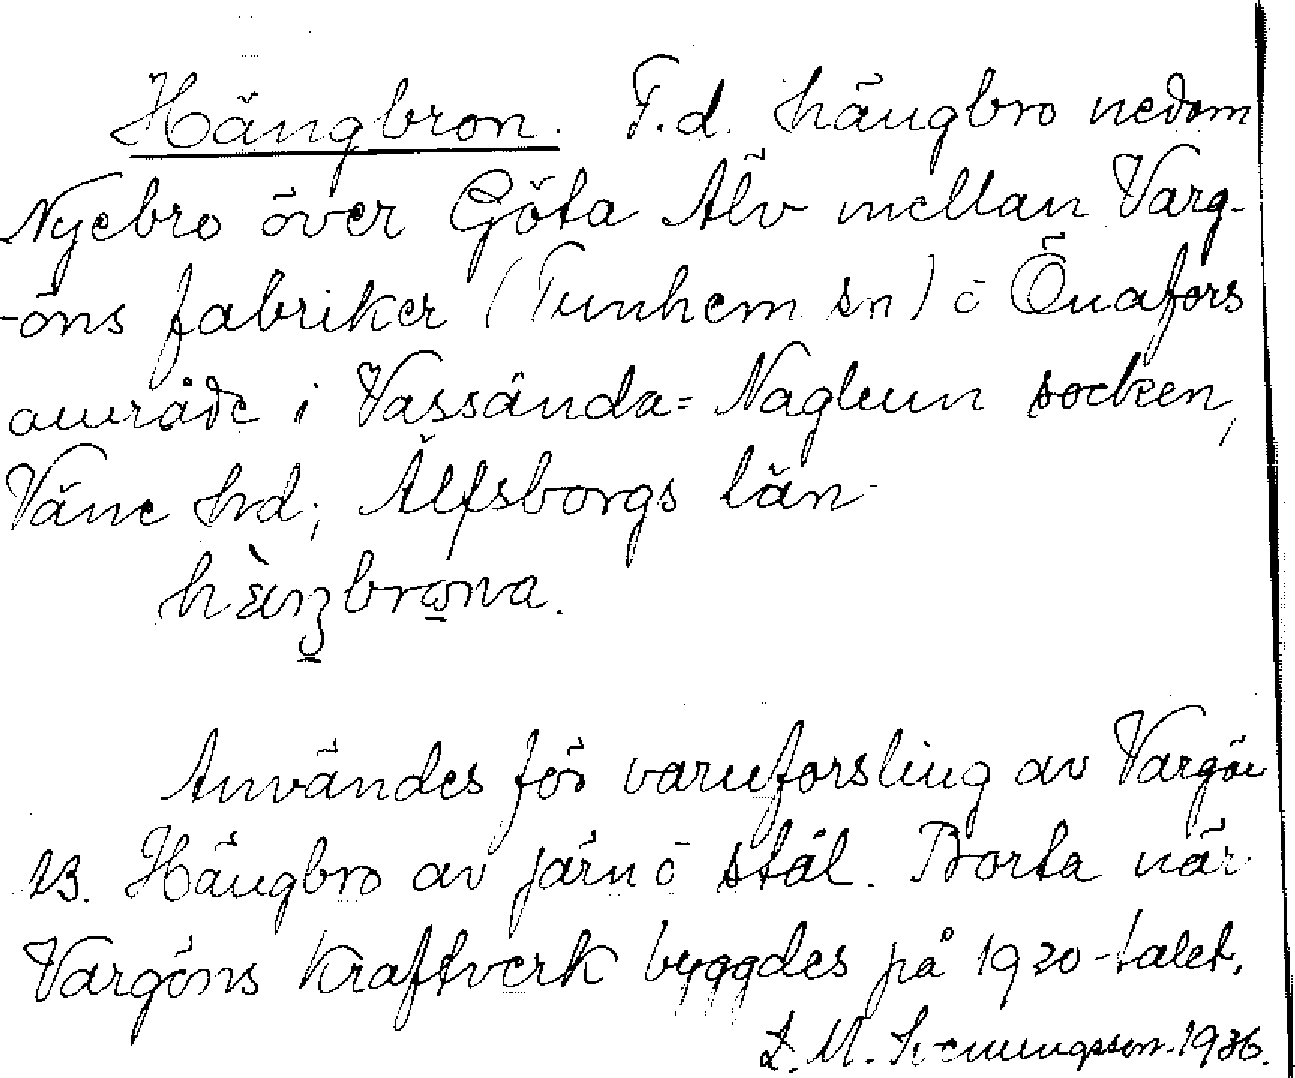 Hängbron. F.d. hängbro nedom
Nyebro över Göta Älv mellan Varg-
-öns fabriker (Tunhem sn) o Önafors
område i Vassända=Naglum socken,
Väne hrd; Älfsborgs län.
hä̀nʒbrona.
Användes för varuforsling av Vargön
Hängbro av järn o stål. Borta när
Vargöns Kraftverk byggdes på 1920-talet.
M. 1936.